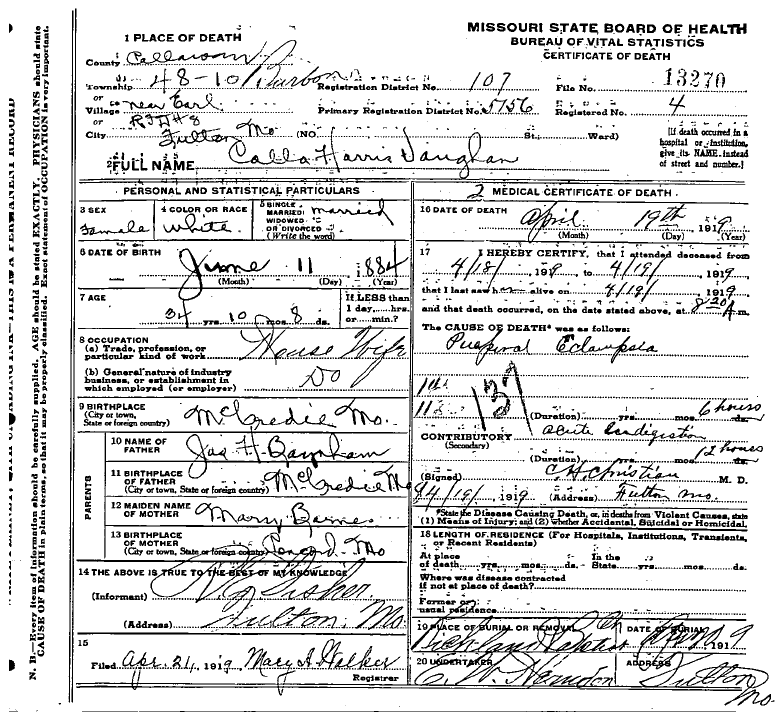 MISSOURI STATE BOARD OF HEALTH
BUREAU OF VITAL STATISTICS
CERTIFICATE OF DEATH
1 PLACE OF DEATH
County Callaway
Township 48-10 Registration District No. 107 File No. 13270
or
Village near Earl Primary Registration District No. 5156 Registered No. 4
or
City Fulton Mo (NO. St.; Ward)
[If death occurred in a hospital or institution, give its NAME instead of street and number.]
2 FULL NAME Calla Harris Vaughan
PERSONAL AND STATISTICAL PARTICULARS
3 SEX Female
4 COLOR OR RACE white
5 SINGLE, MARRIED, WIDOWED OR DIVORCED (Write the word) married
6 DATE OF BIRTH June 11 1884
(Month) (Day) (Year)
7 AGE 34 yrs. 10 mos. 8 ds.
If LESS than 1 day....hrs. or....min.?
8 OCCUPATION
(a) Trade, profession, or particular kind of work House Wife
(b) General nature of industry business, or establishment in which employed (or employer) Do
9 BIRTHPLACE
(City or town, State or foreign country) McCredie Mo.
PARENTS
10 NAME OF FATHER Jas H
11 BIRTHPLACE OF FATHER
(City or town, State or foreign country) McCredie Mo
12 MAIDEN NAME OF MOTHER Mary Barnes
13 BIRTHPLACE OF MOTHER
(City or town, State or foreign country) Concord Mo
14 THE ABOVE IS TRUE TO THE BEST OF MY KNOWLEDGE
(Informant) Fisher
(Address) Fulton Mo.
15
Filed Apr. 21, 1919 Mary A Walker
Registrar
2 MEDICAL CERTIFICATE OF DEATH
16 DATE OF DEATH April 19th 1919
(Month) (Day) (Year)
17 I HEREBY CERTIFY, that I attended deceased from
4/18/ 1919 to 4/19/ 1919
that I last saw her alive on 4/19/ 1919
and that death occurred, on the date stated above, at 8:20 A m.
The CAUSE OF DEATH* was as follows:
Pueperal Eclampsia
137
(Duration) yrs. mos. 6 hours ds.
CONTRIBUTORY acute indigestion
(Secondary)
(Duration) yrs. mos. 12 hours ds.
(Signed) C H Christian M. D.
4/19/ 1919 (Address) Fulton Mo.
*State the Disease Causing Death, or, in deaths from Violent Causes, state
(1) Means of Injury; and (2) whether Accidental, Suicidal or Homicidal.
18 LENGTH OF RESIDENCE (For Hospitals, Institutions, Transients, or Recent Residents)
At place of death yrs. mos. ds. In the State yrs. mos. ds.
Where was disease contracted if not at place of death?
Former or usual residence
19 PLACE OF BURIAL OR REMOVAL Richland
DATE OF BURIAL 1919
20 UNDERTAKER C. W. Herndon
ADDRESS Fulton Mo.
N. B.—Every item of information should be carefully supplied. AGE should be stated EXACTLY. PHYSICIANS should state
CAUSE OF DEATH in plain terms, so that it may be properly classified. Exact statement of OCCUPATION is very important.
INK—THIS IS A PERMANENT RECORD